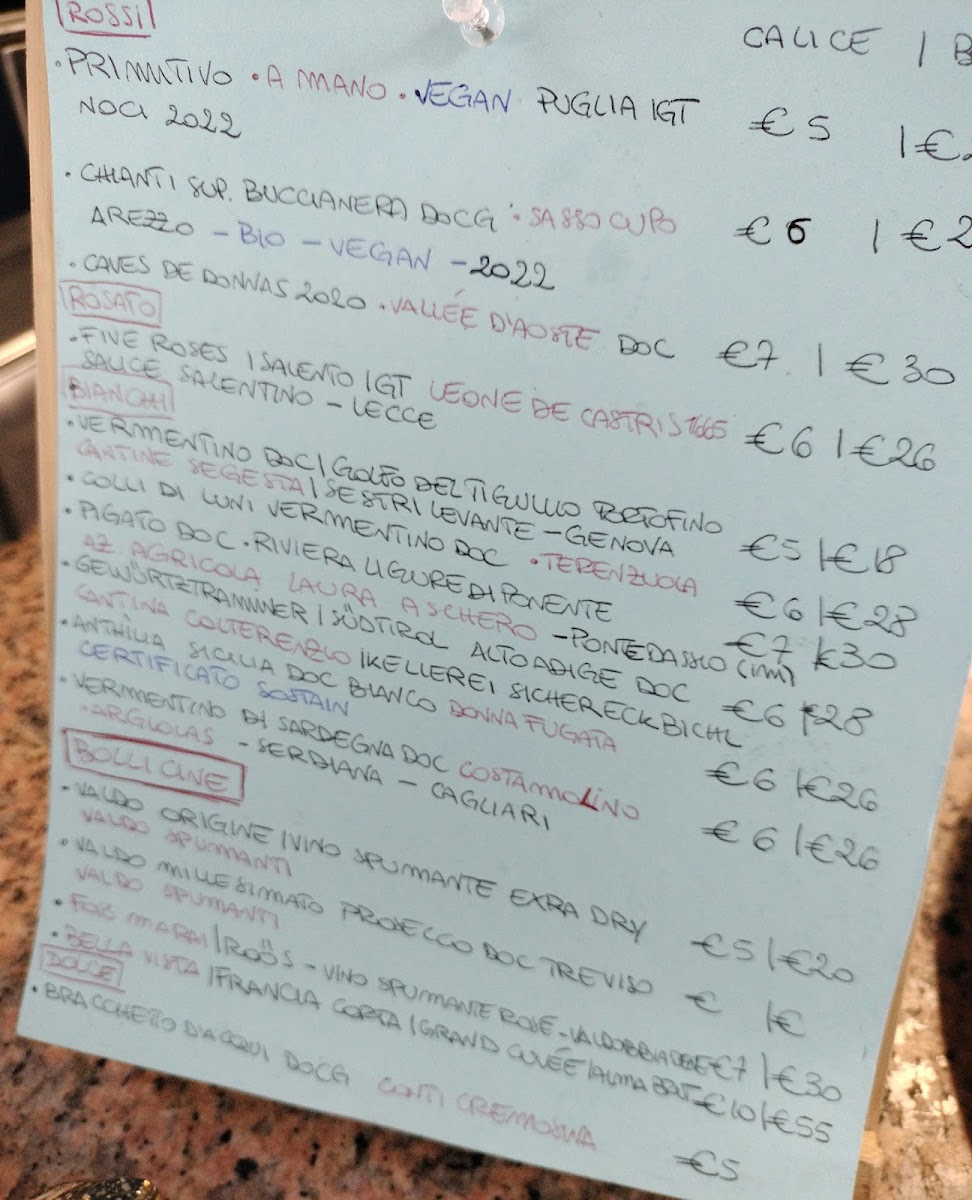 ROSSI
CALICE | B
• PRIMITIVO • A MANO • VEGAN PUGLIA IGT €5 | €2
NOCI 2022
• CHIANTI SUP. BUCCIANERA DOCG • SASSO CUPO €6 | €2
AREZZO - BIO - VEGAN - 2022
• CAVES DE DONNAS 2020 • VALLÉE D'AOSTE DOC €7 | €30
ROSATO
• FIVE ROSES | SALENTO IGT LEONE DE CASTRIS 1665 €6 | €26
SALICE SALENTINO - LECCE
BIANCHI
• VERMENTINO DOC | GOLFO DEL TIGULLIO PORTOFINO €5 | €18
CANTINE SEGESTA | SESTRI LEVANTE - GENOVA
• COLLI DI LUNI VERMENTINO DOC • TERENZUOLA €6 | €28
• PIGATO DOC • RIVIERA LIGURE DI PONENTE €7 | €30
AZ. AGRICOLA LAURA ASCHERO - PONTEDASSIO (IM)
• GEWÜRTZTRAMINER | SÜDTIROL ALTO ADIGE DOC €6 | €28
CANTINA COLTERENZIO | KELLEREI SICHERECKBICHL
• ANTHÌLIA SICILIA DOC BIANCO DONNA FUGATA €6 | €26
CERTIFICATO SOSTAIN
• VERMENTINO DI SARDEGNA DOC COSTAMOLINO €6 | €26
• ARGIOLAS - SERDIANA - CAGLIARI
BOLLICINE
• VALDO ORIGINE | VINO SPUMANTE EXRA DRY €5 | €20
VALDO SPUMANTI
• VALDO MILLESIMATO PROSECCO DOC TREVISO € | €
VALDO SPUMANTI
• FOSS MARAI | ROÖS - VINO SPUMANTE ROSÉ - VALDOBBIADENE €7 | €30
• BELLA VISTA | FRANCIA CORTA | GRAND CUVÉE | ALMA BRUT €10 | €55
DOLCE
• BRACCHETTO D'ACQUI DOCG CONTI CREMOSINA €5